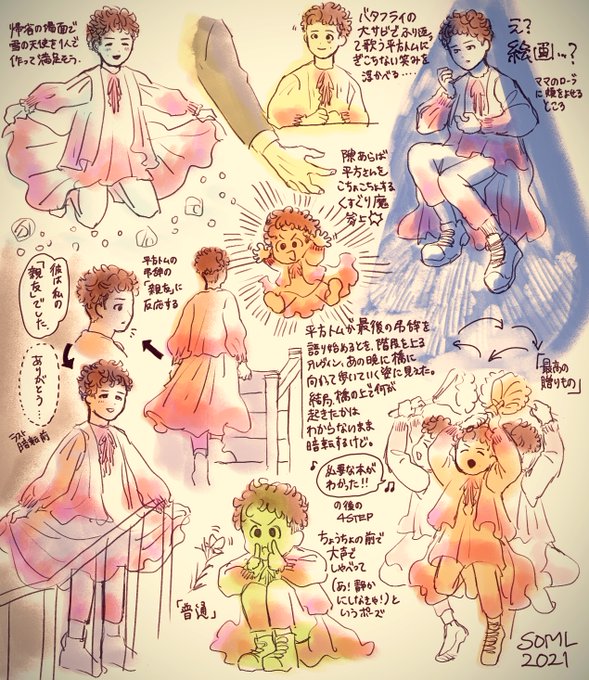 帰省の場面で
雪の天使を1人で
作って満足そう。
バタフライの
大サビでふり返っ
て歌う平方トムに
ぎこちない笑みを
浮かべる……
え?
絵画…?
ママのローブ
に頬をよせる
ところ
隙あらば
平方さんを
こちょこちょする
くすぐり魔
参上
彼は私の
「親友」でした。
平方トムの
弔辞の
「親友」に
反応する
ありがとう…
ラスト
暗転前
平方トムが最後の弔辞を
語り始めるとを、階段を上る
アルヴィン。あの晩に橋に
向かって歩いていく姿に見えた。
結局、橋の上で何が
起きたかは
わからないまま
暗転するけど。
「最高の
贈りもの」
♪
必要な本が
わかった!!
♫
の後の
4STEP
ちょうちょの前で
大声で
しゃべって
(あ!静か
にしなきゃ!)と
いうポーズ
「普通」
SOML
2021